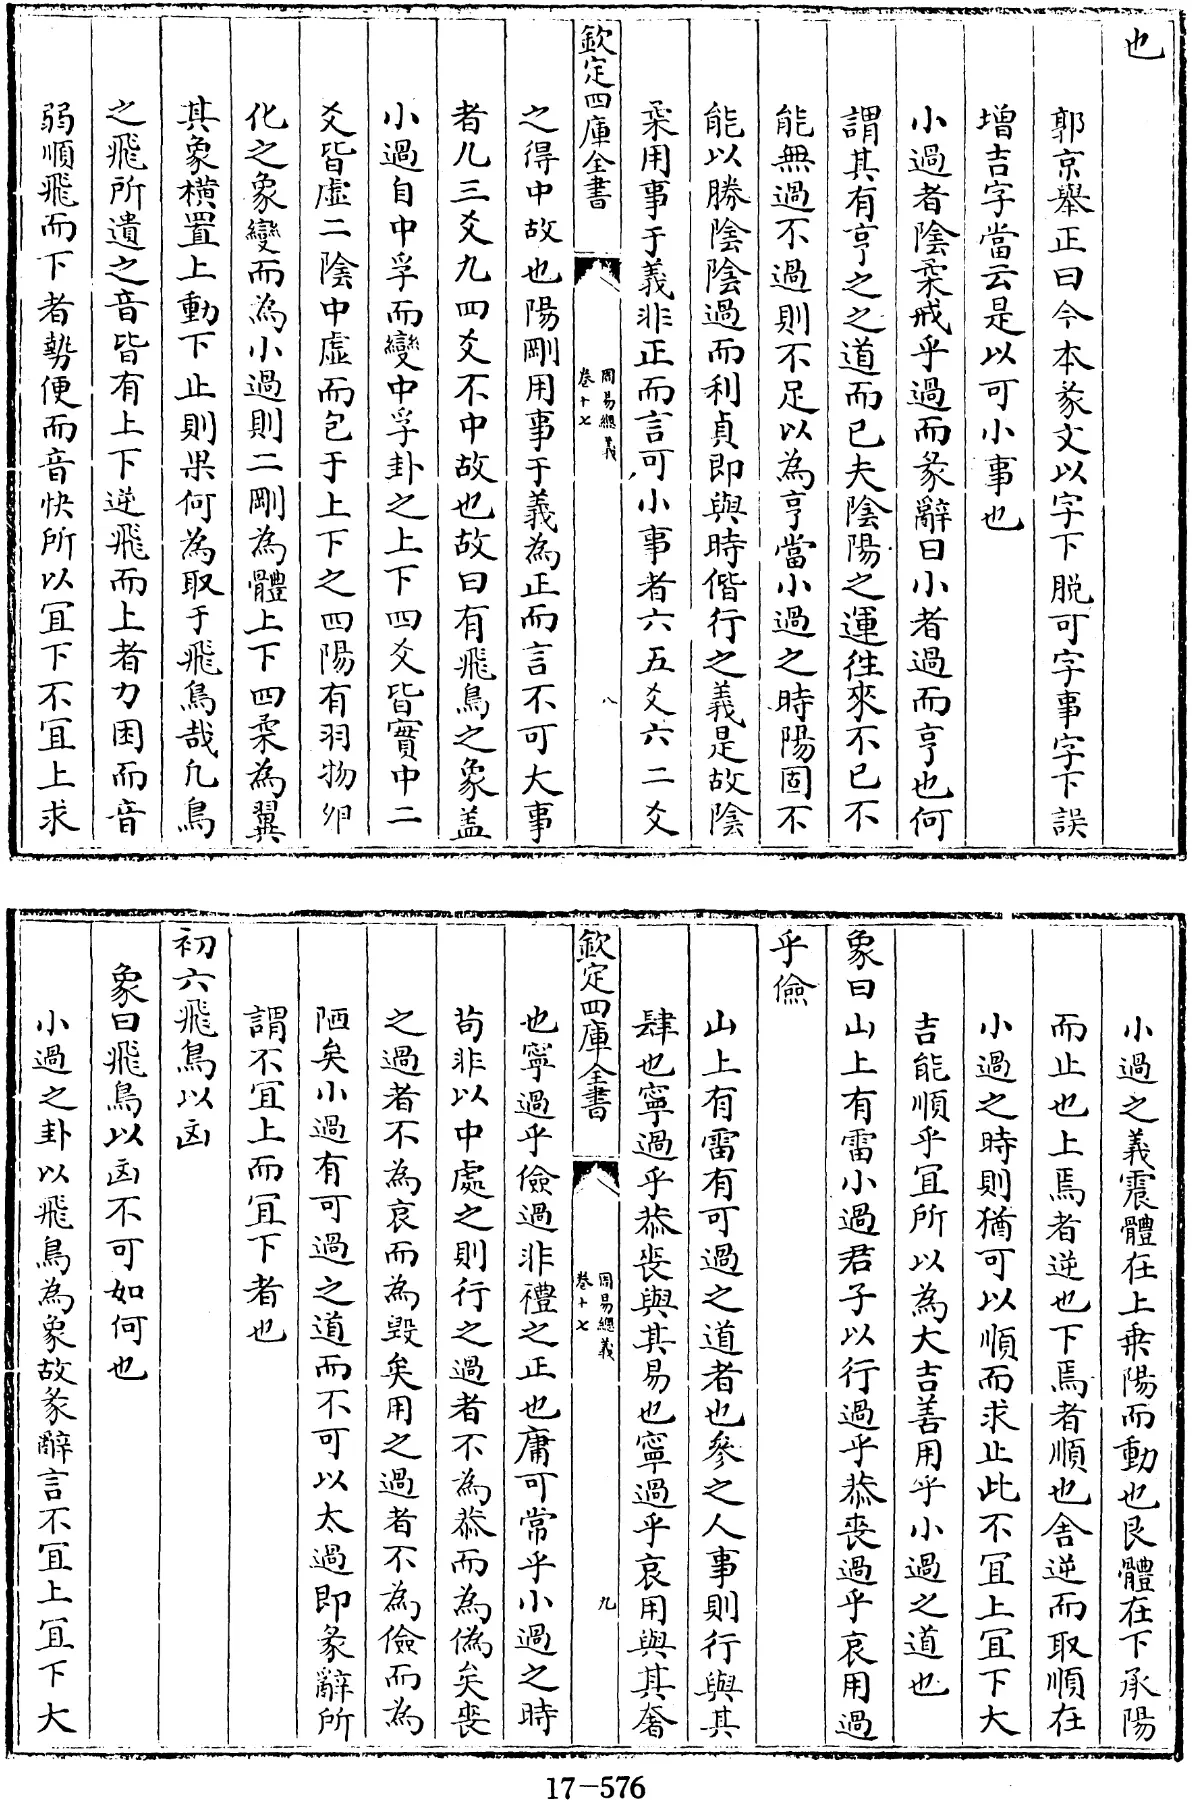 也
郭京舉正曰今本彖文以字下脱可字事字下誤
增吉字當云是以可小事也
小過者陰柔戒乎過而彖辭曰小者過而亨也何
謂其有亨之之道而已夫陰陽之運徃來不已不
能無過不過則不足以為亨當小過之時陽固不
能以勝陰陰過而利貞即與時偕行之義是故陰
柔用事于義非正而言可小事者六五爻六二爻
欽定四庫全書
周易總義
卷十七
八
之得中故也陽剛用事于義為正而言不可大事
者凡三爻九四爻不中故也故曰有飛鳥之象盖
小過自中孚而變中孚卦之上下四爻皆實中二
爻皆虛二陰中虛而包于上下之四陽有羽物卵
化之象變而為小過則二剛為體上下四柔為翼
其象橫置上動下止則果何為取于飛鳥哉凡鳥
之飛所遺之音皆有上下逆飛而上者力困而音
弱順飛而下者勢便而音快所以冝下不冝上求
小過之義震體在上乗陽而動也艮體在下承陽
而止也上焉者逆也下焉者順也舍逆而取順在
小過之時則猶可以順而求止此不冝上冝下大
吉能順乎冝所以為大吉善用乎小過之道也
象曰山上有雷小過君子以行過乎恭喪過乎哀用過
乎儉
山上有雷有可過之道者也參之人事則行與其
肆也寧過乎恭喪與其易也寧過乎哀用與其奢
欽定四庫全書
周易總義
卷十七
九
也寧過乎儉過非禮之正也庸可常乎小過之時
茍非以中處之則行之過者不為恭而為偽矣喪
之過者不為哀而為毁矣用之過者不為儉而為
陋矣小過有可過之道而不可以太過即彖辭所
謂不冝上而冝下者也
初六飛鳥以凶
象曰飛鳥以凶不可如何也
小過之卦以飛鳥為象故彖辭言不冝上冝下大
17-576